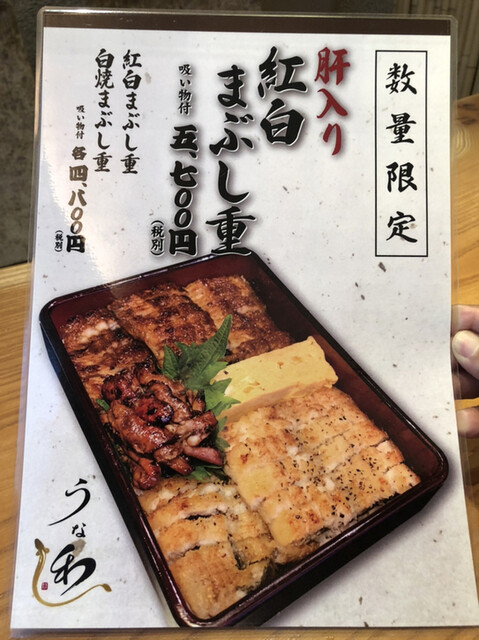 数量限定
肝入り
紅白
まぶし重
吸い物付
五、七〇〇円
(税別)
紅白まぶし重
白焼まぶし重
吸い物付
各四、八〇〇円
(税別)
うな和